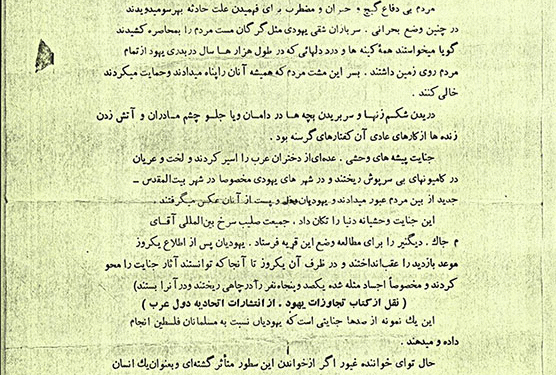 مردم بی دفاع گیج و حیران و مضطرب برای فهمیدن علت حادثه بهرسومیدویدند
در چنین وضع بحرانی . سربازان شقی یهودی مثل گرگان مست مردم را بمحاصره کشیدند
گویا میخواستند همه کینه ها و درد دلهائی که در طول هزار ها سال دربدری یهود از تمام
مردم روی زمین داشتند . بسر این مشت مردم که همیشه آنان را پناه میدادند وحمایت میکردند
خالی کنند .
دریدن شکم زنها و سربریدن بچه ها در دامان ویا جلو چشم مادران و آتش زدن
زنده ها ازکارهای عادی آن کفتارهای گرسنه بود .
جنایت پیشه های وحشی . عده‌ای از دختران عرب را اسیر کردند و لخت و عریان
در کامیونهای بی سرپوش ریختند و در شهر های یهودی مخصوصا در شهر بیت‌المقدس ـ
جدید از بین مردم عبور میدادند و یهودیان و پست از آنان عکس میگرفتند .
این جنایت وحشیانه دنیا را تکان داد . جمعیت صلیب سرخ بین‌المللی آقای
م جاك . دیگنیر را برای مطالعه وضع این قریه فرستاد . یهودیان پس از اطلاع یکروز
موعد بازدید را عقب‌انداختند و در ظرف آن یکروز تا آنجاکه توانستند آثار جنایت را محو
کردند و مخصوصاً اجساد مثله شده یکصد وپنجاه‌نفر رادرچاهی ریختند ودرآنرا بستند)
( نقل از کتاب تجاوزات یهود . از انتشارات اتحادیه دول عرب )
این یك نمونه از صدها جنایتی است که یهودیان نسبت به مسلمانان فلسطین انجام
داده و میدهند .
حال توای خواننده غیور اگر ازخواندن این سطور متأثر گشته‌ای وبعنوان‌یك انسان